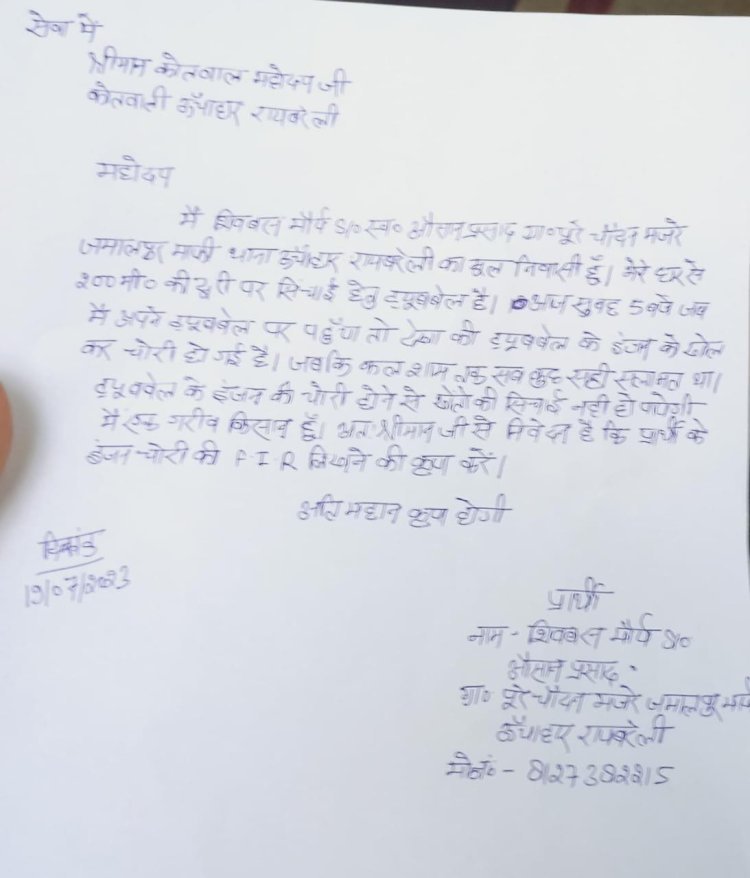 सेवा में
श्रीमान कोतवाल महोदय जी
कोतवाली ऊँचाहार रायबरेली
महोदय
मैं शिवबरन मौर्य S/० स्व० औसान प्रसाद ग्रा० पूरे चौदन मजरे
जमालपुर माफी थाना ऊँचाहार रायबरेली का मूल निवासी हूँ। मेरे घर से
२०० मी० की दूरी पर सिचाई हेतु ट्यूबबेल है। आज सुबह 5 बजे जब
मैं अपने ट्यूबवेल पर पहुँचा तो देखा की ट्यूबवेल के इंजन के खोल
कर चोरी हो गई है। जबकि कल शाम तक सब कुछ सही सलामत था।
ट्यूबवेल के इंजन की चोरी होने से खेतो की सिचाई नही हो पायेगी
मैं एक गरीब किसान हूँ। अतः श्रीमान जी से निवेदन है कि प्रार्थी के
इंजन चोरी की F.I.R लिखने की कृपा करें।
अति महान कृपा होगी
दिनांक
19/07/2023
प्रार्थी
नाम - शिवबरन मौर्य S/०
औसान प्रसाद
ग्रा० पूरे चौदन मजरे जमालपुर माफी
ऊँचाहार रायबरेली
मो०नं० - 8127382215